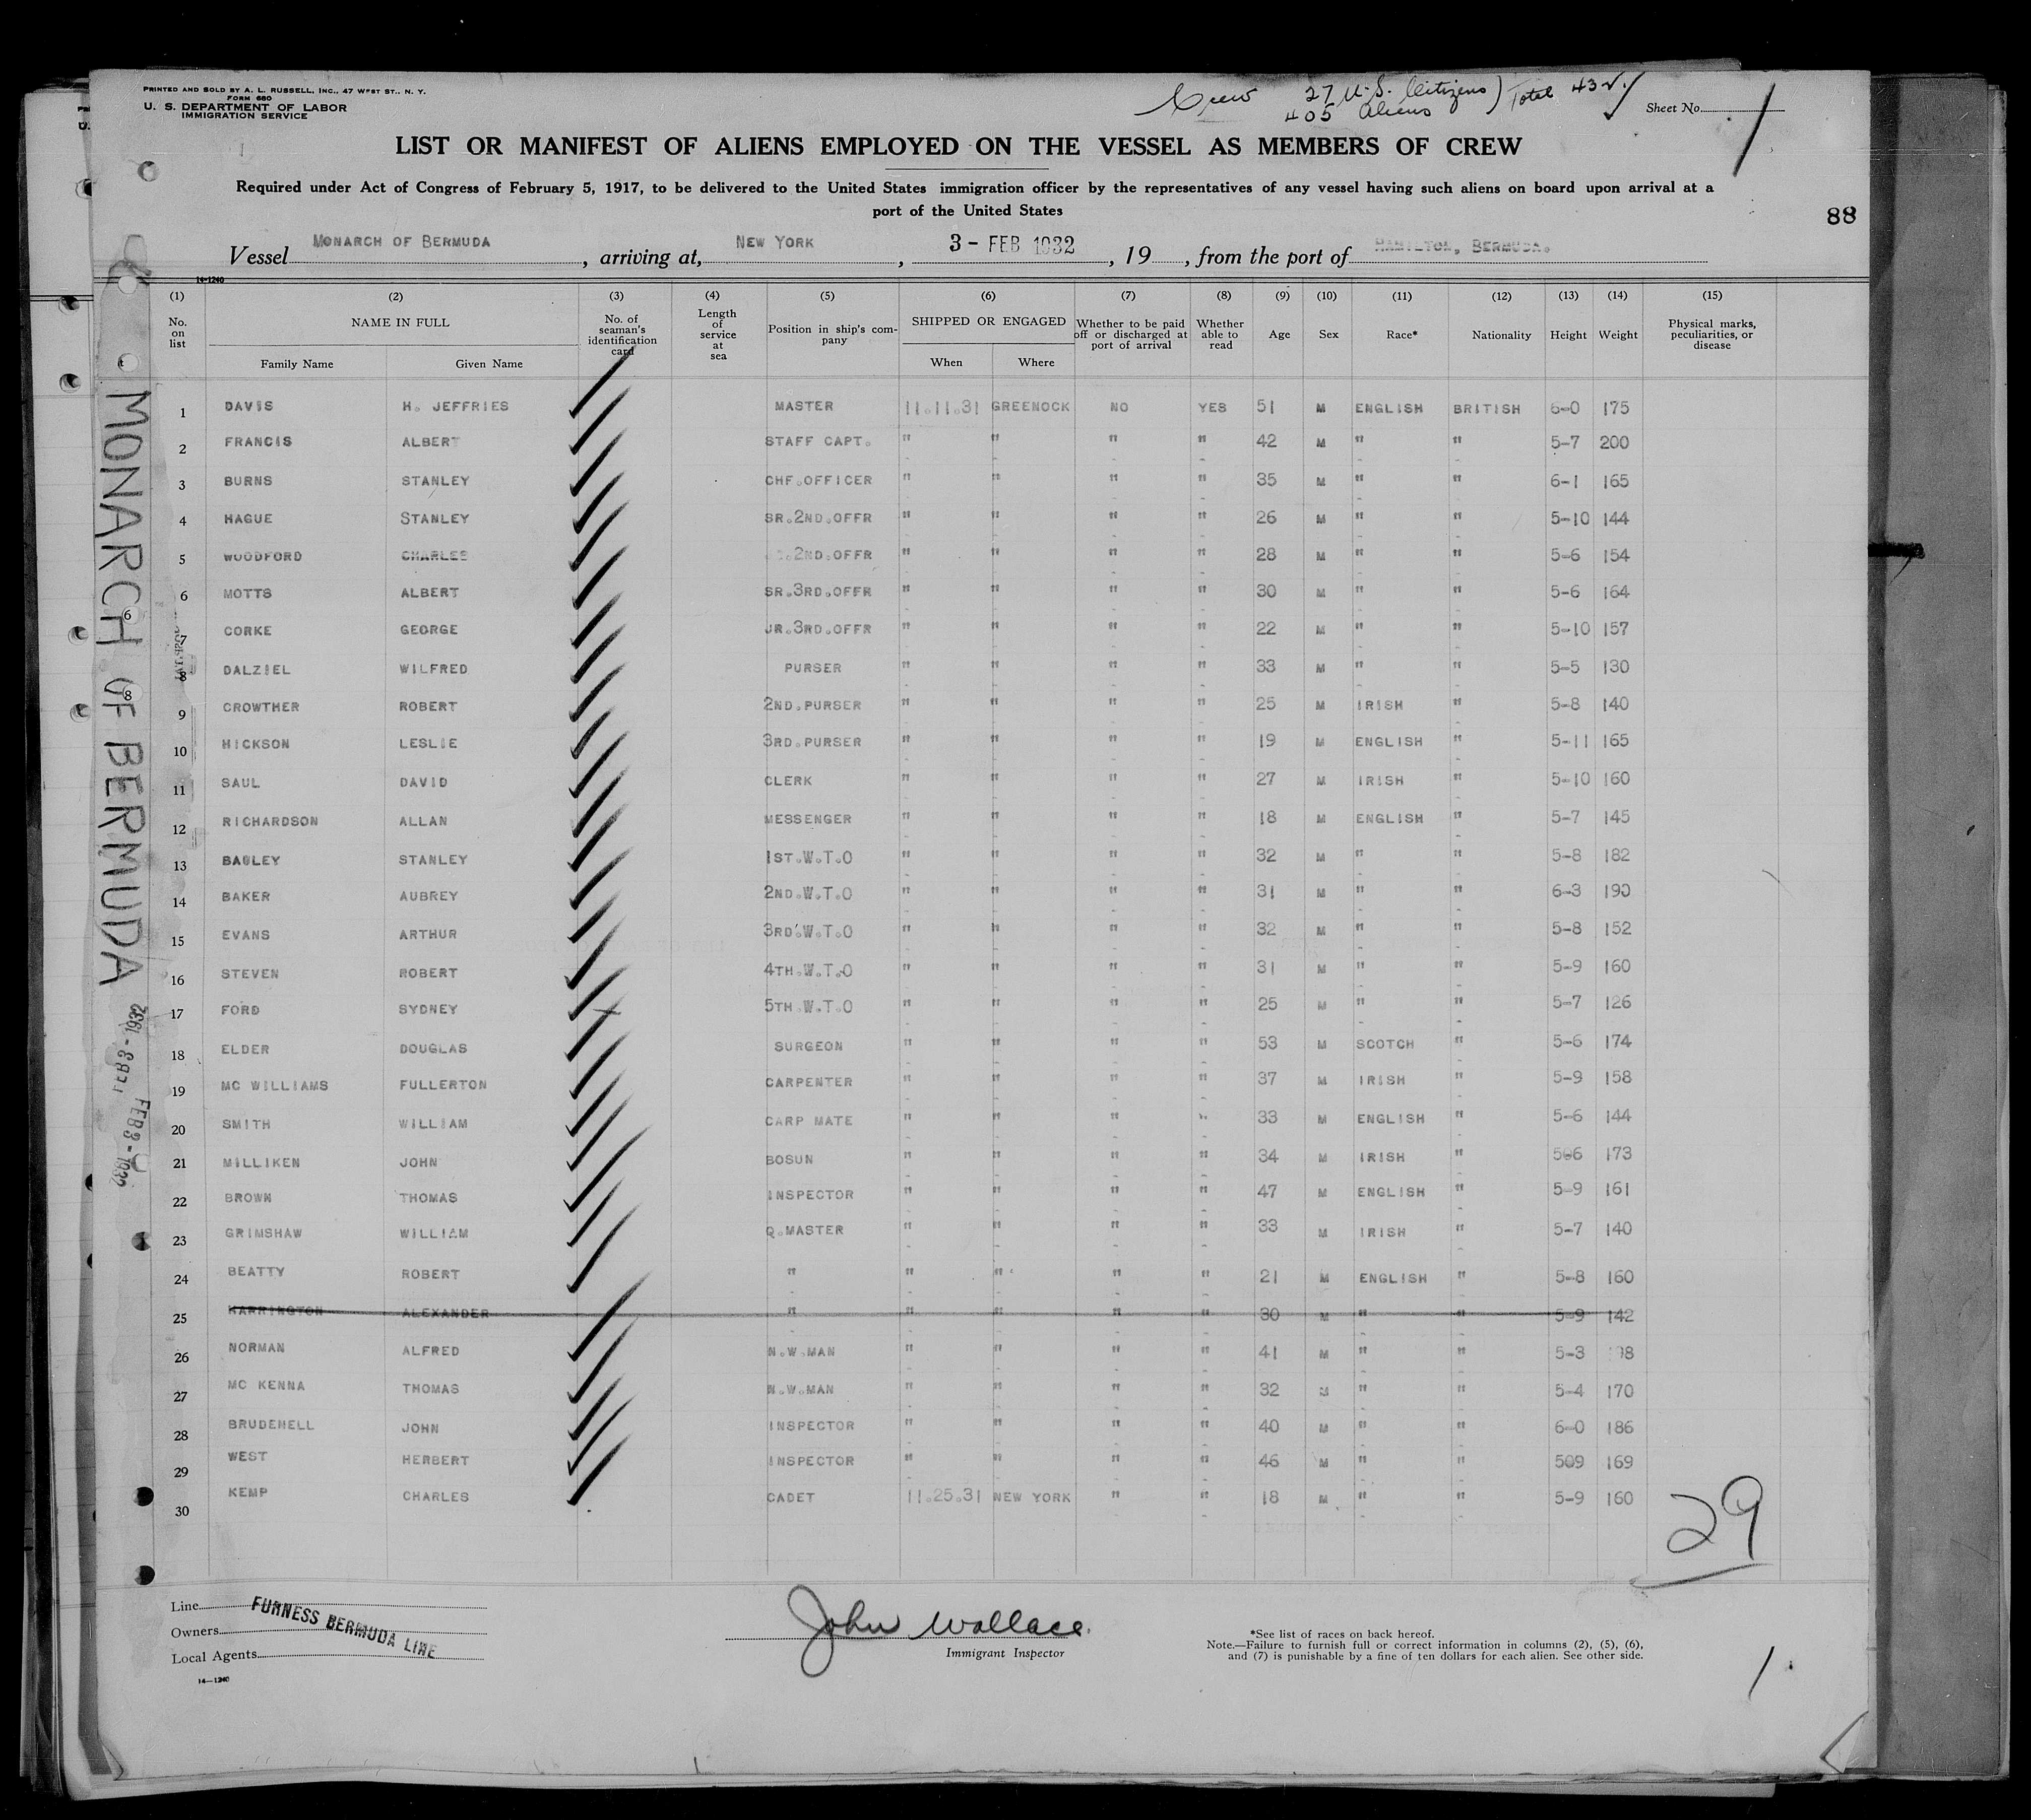 PRINTED AND SOLD BY A. L. RUSSELL, INC., 47 WEST ST., N. Y.
FORM 680
U. S. DEPARTMENT OF LABOR
IMMIGRATION SERVICE
Crew 27 U.S. Citizens) Total 432
405 Aliens
Sheet No. 1
LIST OR MANIFEST OF ALIENS EMPLOYED ON THE VESSEL AS MEMBERS OF CREW
Required under Act of Congress of February 5, 1917, to be delivered to the United States immigration officer by the representatives of any vessel having such aliens on board upon arrival at a
port of the United States
88
Vessel MONARCH OF BERMUDA, arriving at, NEW YORK, 3 - FEB 1932, 19, from the port of HAMILTON, BERMUDA.
14-1240
(1) (2) (3) (4) (5) (6) (7) (8) (9) (10) (11) (12) (13) (14) (15)
No. on list NAME IN FULL Family Name Given Name No. of seaman's identification card Length of service at sea Position in ship's company SHIPPED OR ENGAGED When Where Whether to be paid off or discharged at port of arrival Whether able to read Age Sex Race* Nationality Height Weight Physical marks, peculiarities, or disease
1 DAVIS H. JEFFRIES MASTER 11.11.31 GREENOCK NO YES 51 M ENGLISH BRITISH 6-0 175
2 FRANCIS ALBERT STAFF CAPT. " " " " 42 M " " 5-7 200
3 BURNS STANLEY CHF.OFFICER " " " " 35 M " " 6-1 165
4 HAGUE STANLEY SR.2ND.OFFR " " " " 26 M " " 5-10 144
5 WOODFORD CHARLES 2ND.OFFR " " " " 28 M " " 5-6 154
6 MOTTS ALBERT SR.3RD.OFFR " " " " 30 M " " 5-6 164
7 CORKE GEORGE JR.3RD.OFFR " " " " 22 M " " 5-10 157
8 DALZIEL WILFRED PURSER " " " " 33 M " " 5-5 130
9 CROWTHER ROBERT 2ND.PURSER " " " " 25 M IRISH " 5-8 140
10 HICKSON LESLIE 3RD.PURSER " " " " 19 M ENGLISH " 5-11 165
11 SAUL DAVID CLERK " " " " 27 M IRISH " 5-10 160
12 RICHARDSON ALLAN MESSENGER " " " " 18 M ENGLISH " 5-7 145
13 BAGLEY STANLEY 1ST.W.T.O " " " " 32 M " " 5-8 182
14 BAKER AUBREY 2ND.W.T.O " " " " 31 M " " 6-3 190
15 EVANS ARTHUR 3RD'W.T.O " " " " 32 M " " 5-8 152
16 STEVEN ROBERT 4TH.W.T.O " " " " 31 M " " 5-9 160
17 FORD SYDNEY 5TH.W.T.O " " " " 25 M " " 5-7 126
18 ELDER DOUGLAS SURGEON " " " " 53 M SCOTCH " 5-6 174
19 MC WILLIAMS FULLERTON CARPENTER " " " " 37 M IRISH " 5-9 158
20 SMITH WILLIAM CARP MATE " " " " 33 M ENGLISH " 5-6 144
21 MILLIKEN JOHN BOSUN " " " " 34 M IRISH " 506 173
22 BROWN THOMAS INSPECTOR " " " " 47 M ENGLISH " 5-9 161
23 GRIMSHAW WILLIAM Q.MASTER " " " " 33 M IRISH " 5-7 140
24 BEATTY ROBERT " " " " " 21 M ENGLISH " 5-8 160
25 HARRINGTON ALEXANDER " " " " " 30 M " " 5-9 142
26 NORMAN ALFRED N.W.MAN " " " " 41 M " " 5-3
27 MC KENNA THOMAS N.W.MAN " " " " 32 M " " 5-4 170
28 BRUDENELL JOHN INSPECTOR " " " " 40 M " " 6-0 186
29 WEST HERBERT INSPECTOR " " " " 46 M " " 509 169
30 KEMP CHARLES CADET 11.25.31 NEW YORK " " 18 M " " 5-9 160
29
MONARCH OF BERMUDA
FEB 3 - 1932
FEB 3 - 1932
6
8
Line
Owners
Local Agents
FURNESS BERMUDA LINE
14-1240
John Wallace
Immigrant Inspector
*See list of races on back hereof.
Note.—Failure to furnish full or correct information in columns (2), (5), (6),
and (7) is punishable by a fine of ten dollars for each alien. See other side.
1